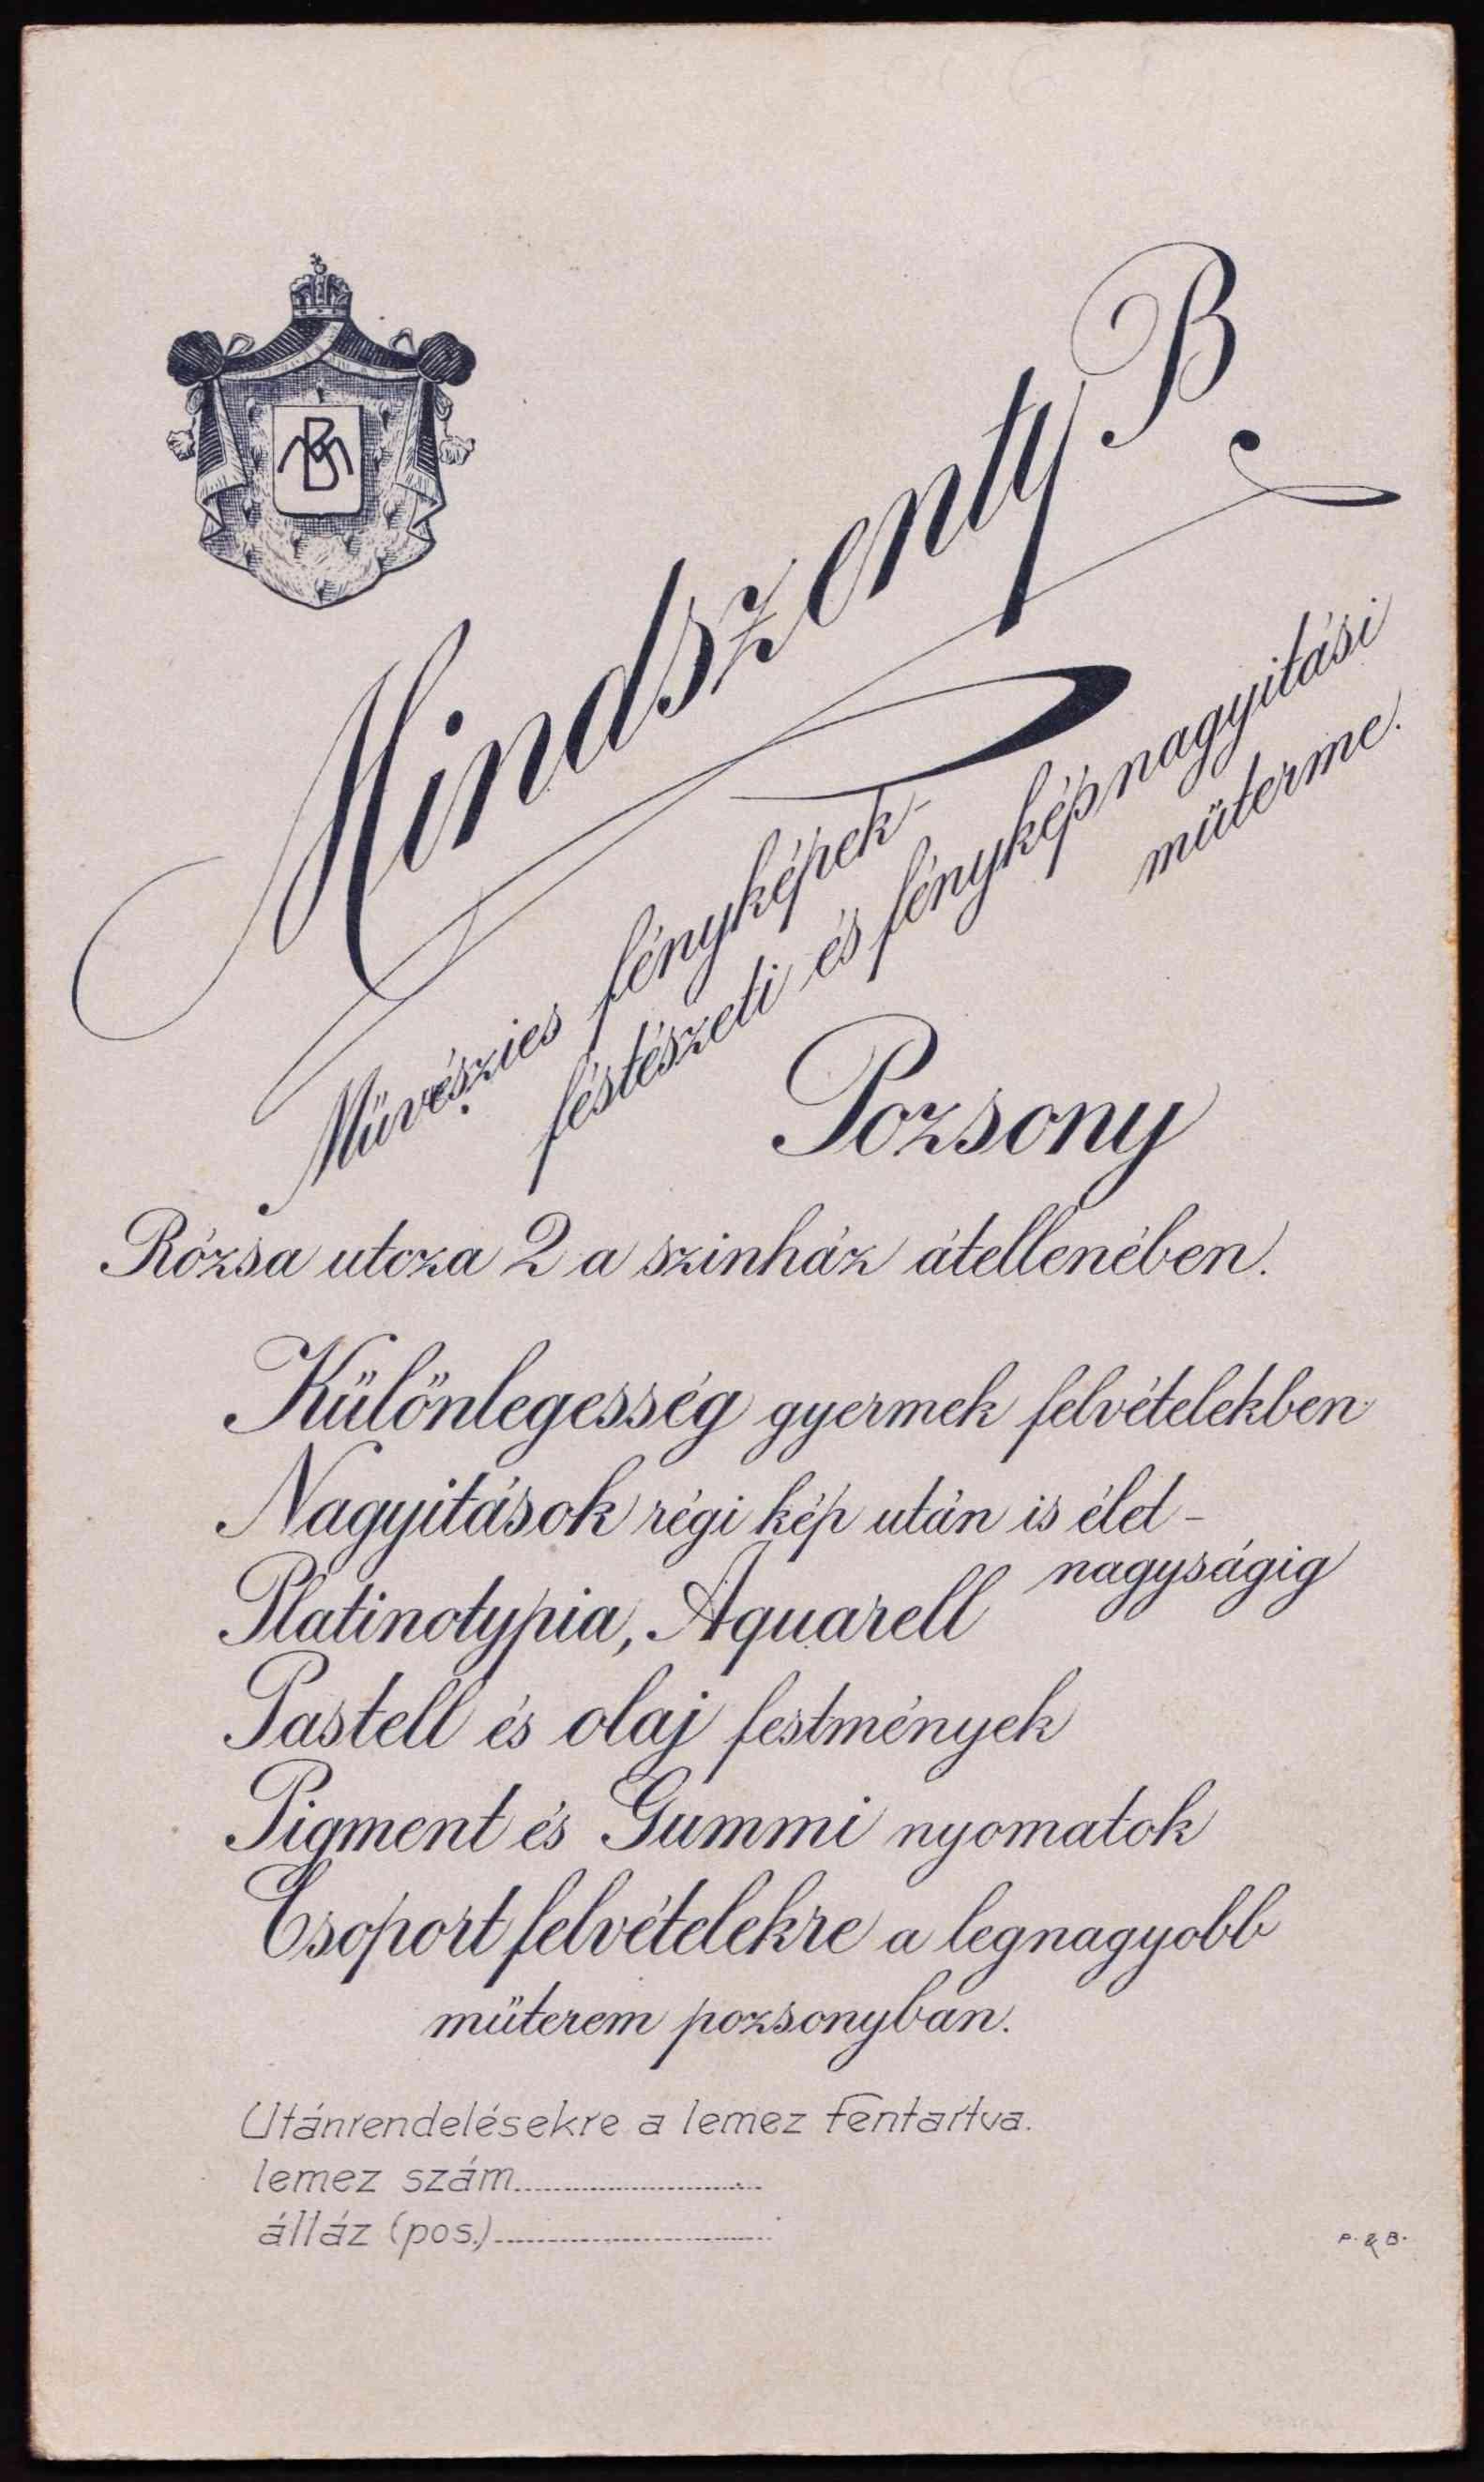 BM
Mindszenty B.
Művészies fényképek-
féstészeti és fényképnagyitási
műterme.
Pozsony
Rózsa utcza 2 a szinház átellenében.
Különlegesség gyermek felvételekben
Nagyitások régi kép után is élet-
nagyságig
Platinotypia, Aquarell
Pastell és olaj festmények
Pigment és Gummi nyomatok
Csoport felvételekre a legnagyobb
műterem pozsonyban.
Utánrendelésekre a lemez fentartva.
lemez szám
álláz (pos.)
P. & B.